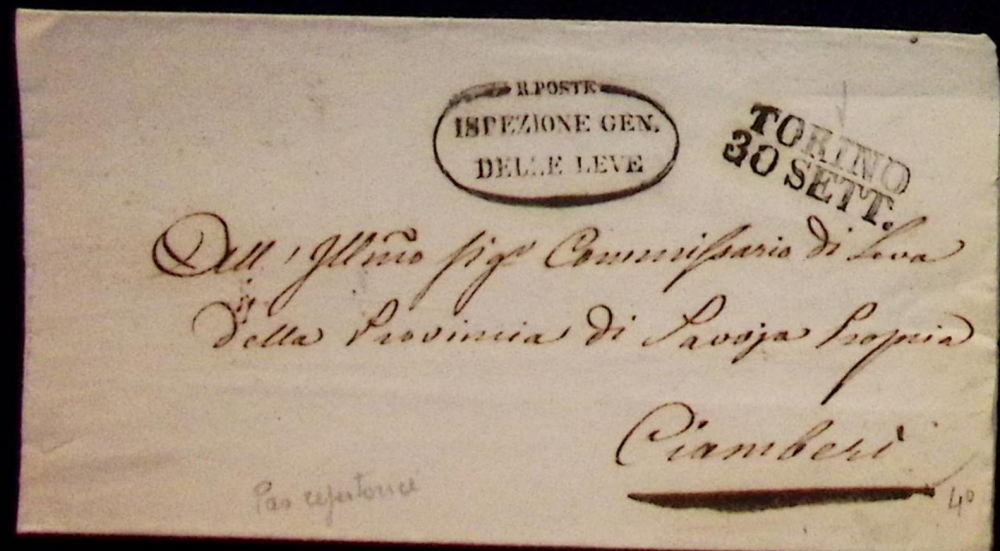 R. POSTE
ISPEZIONE GEN.
DELLE LEVE
TORINO
30 SETT.
All' Illmo Sigr Commissario di Leva
della Provincia di Savoja Propria
Ciamberì
Pas repertorié
40